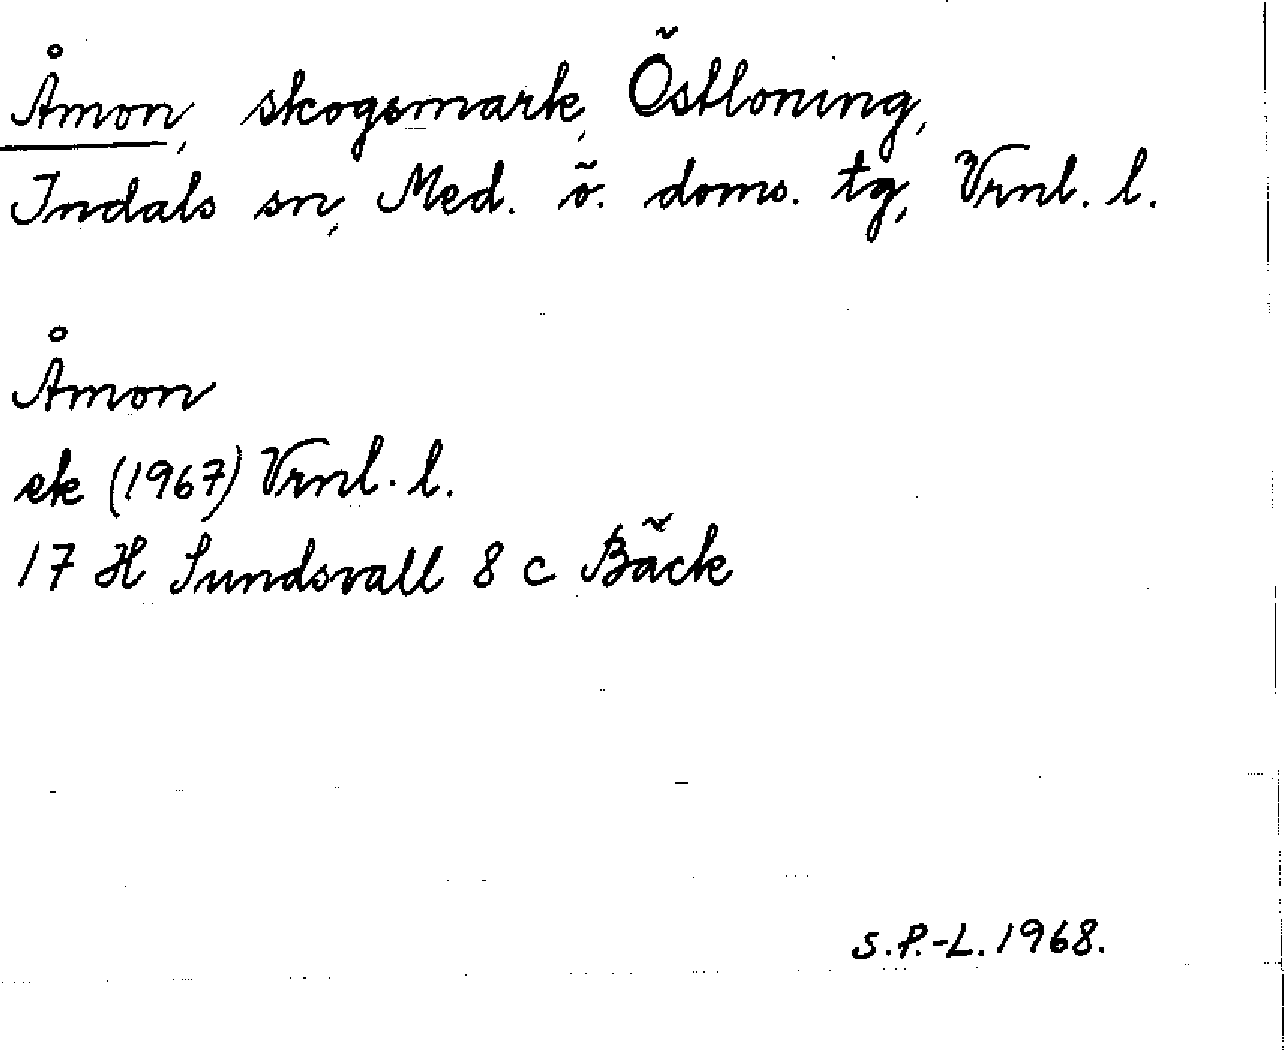 Åmon, skogsmark, Östloning,
Indals sn, Med. ö. doms. tg, Vrnl. l.
Åmon
ek (1967) Vrnl. l.
17 H Sundsvall 8 c Bäck
S.P.-L. 1968.